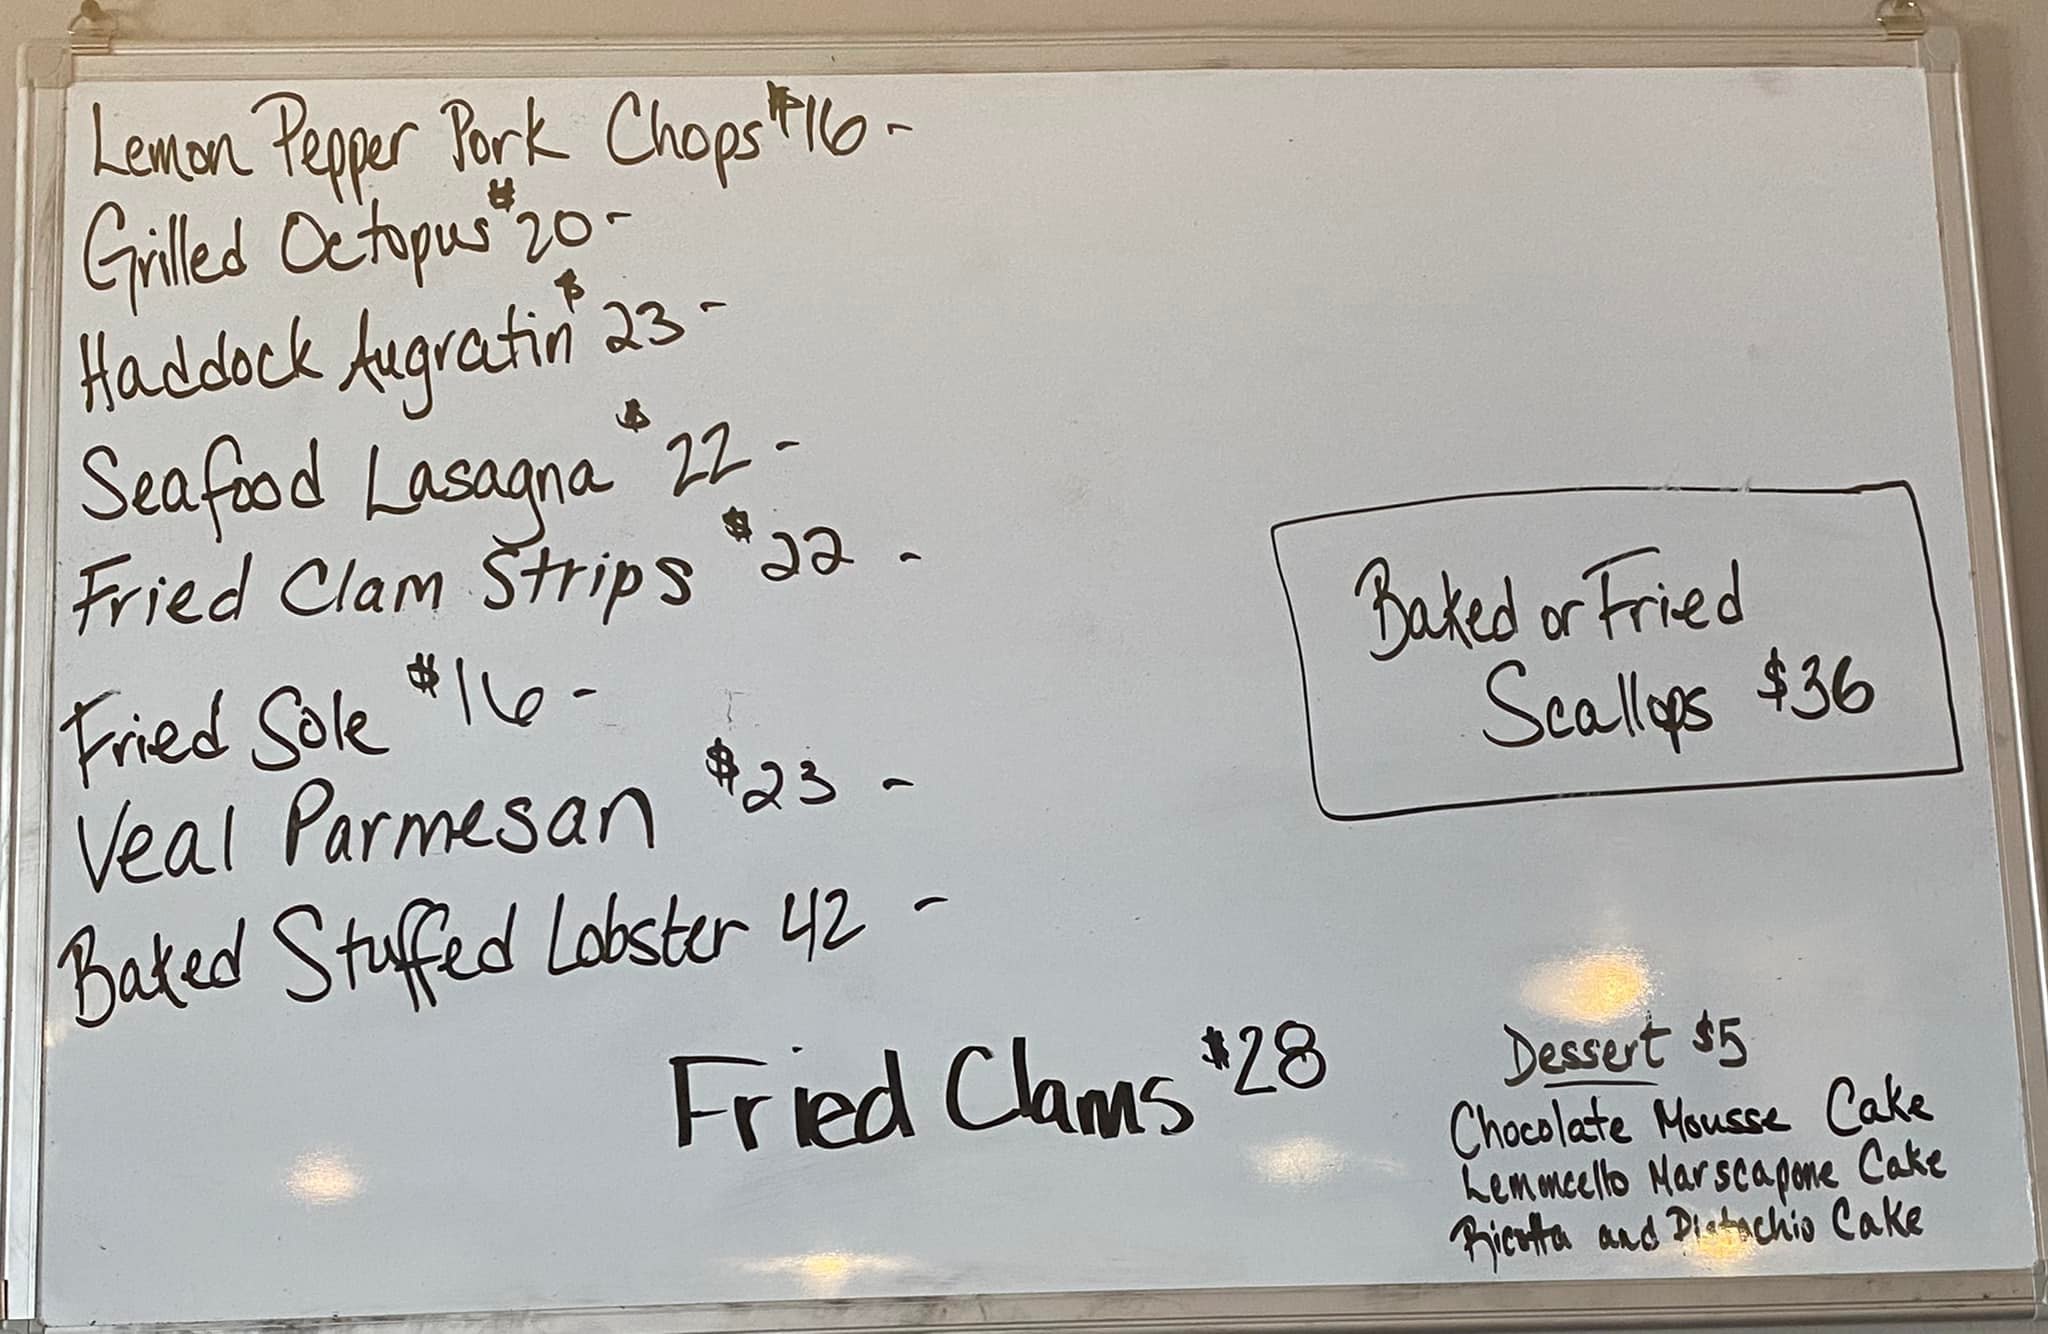 Lemon Pepper Pork Chops $16-
Grilled Octopus $20-
Haddock Augratin $23-
Seafood Lasagna $22-
Fried Clam Strips $22-
Fried Sole $16-
Veal Parmesan $23-
Baked Stuffed Lobster 42-
Fried Clams $28
Baked or Fried
Scallops $36
Dessert $5
Chocolate Mousse Cake
Lemoncello Marscapone Cake
Ricotta and Pistachio Cake